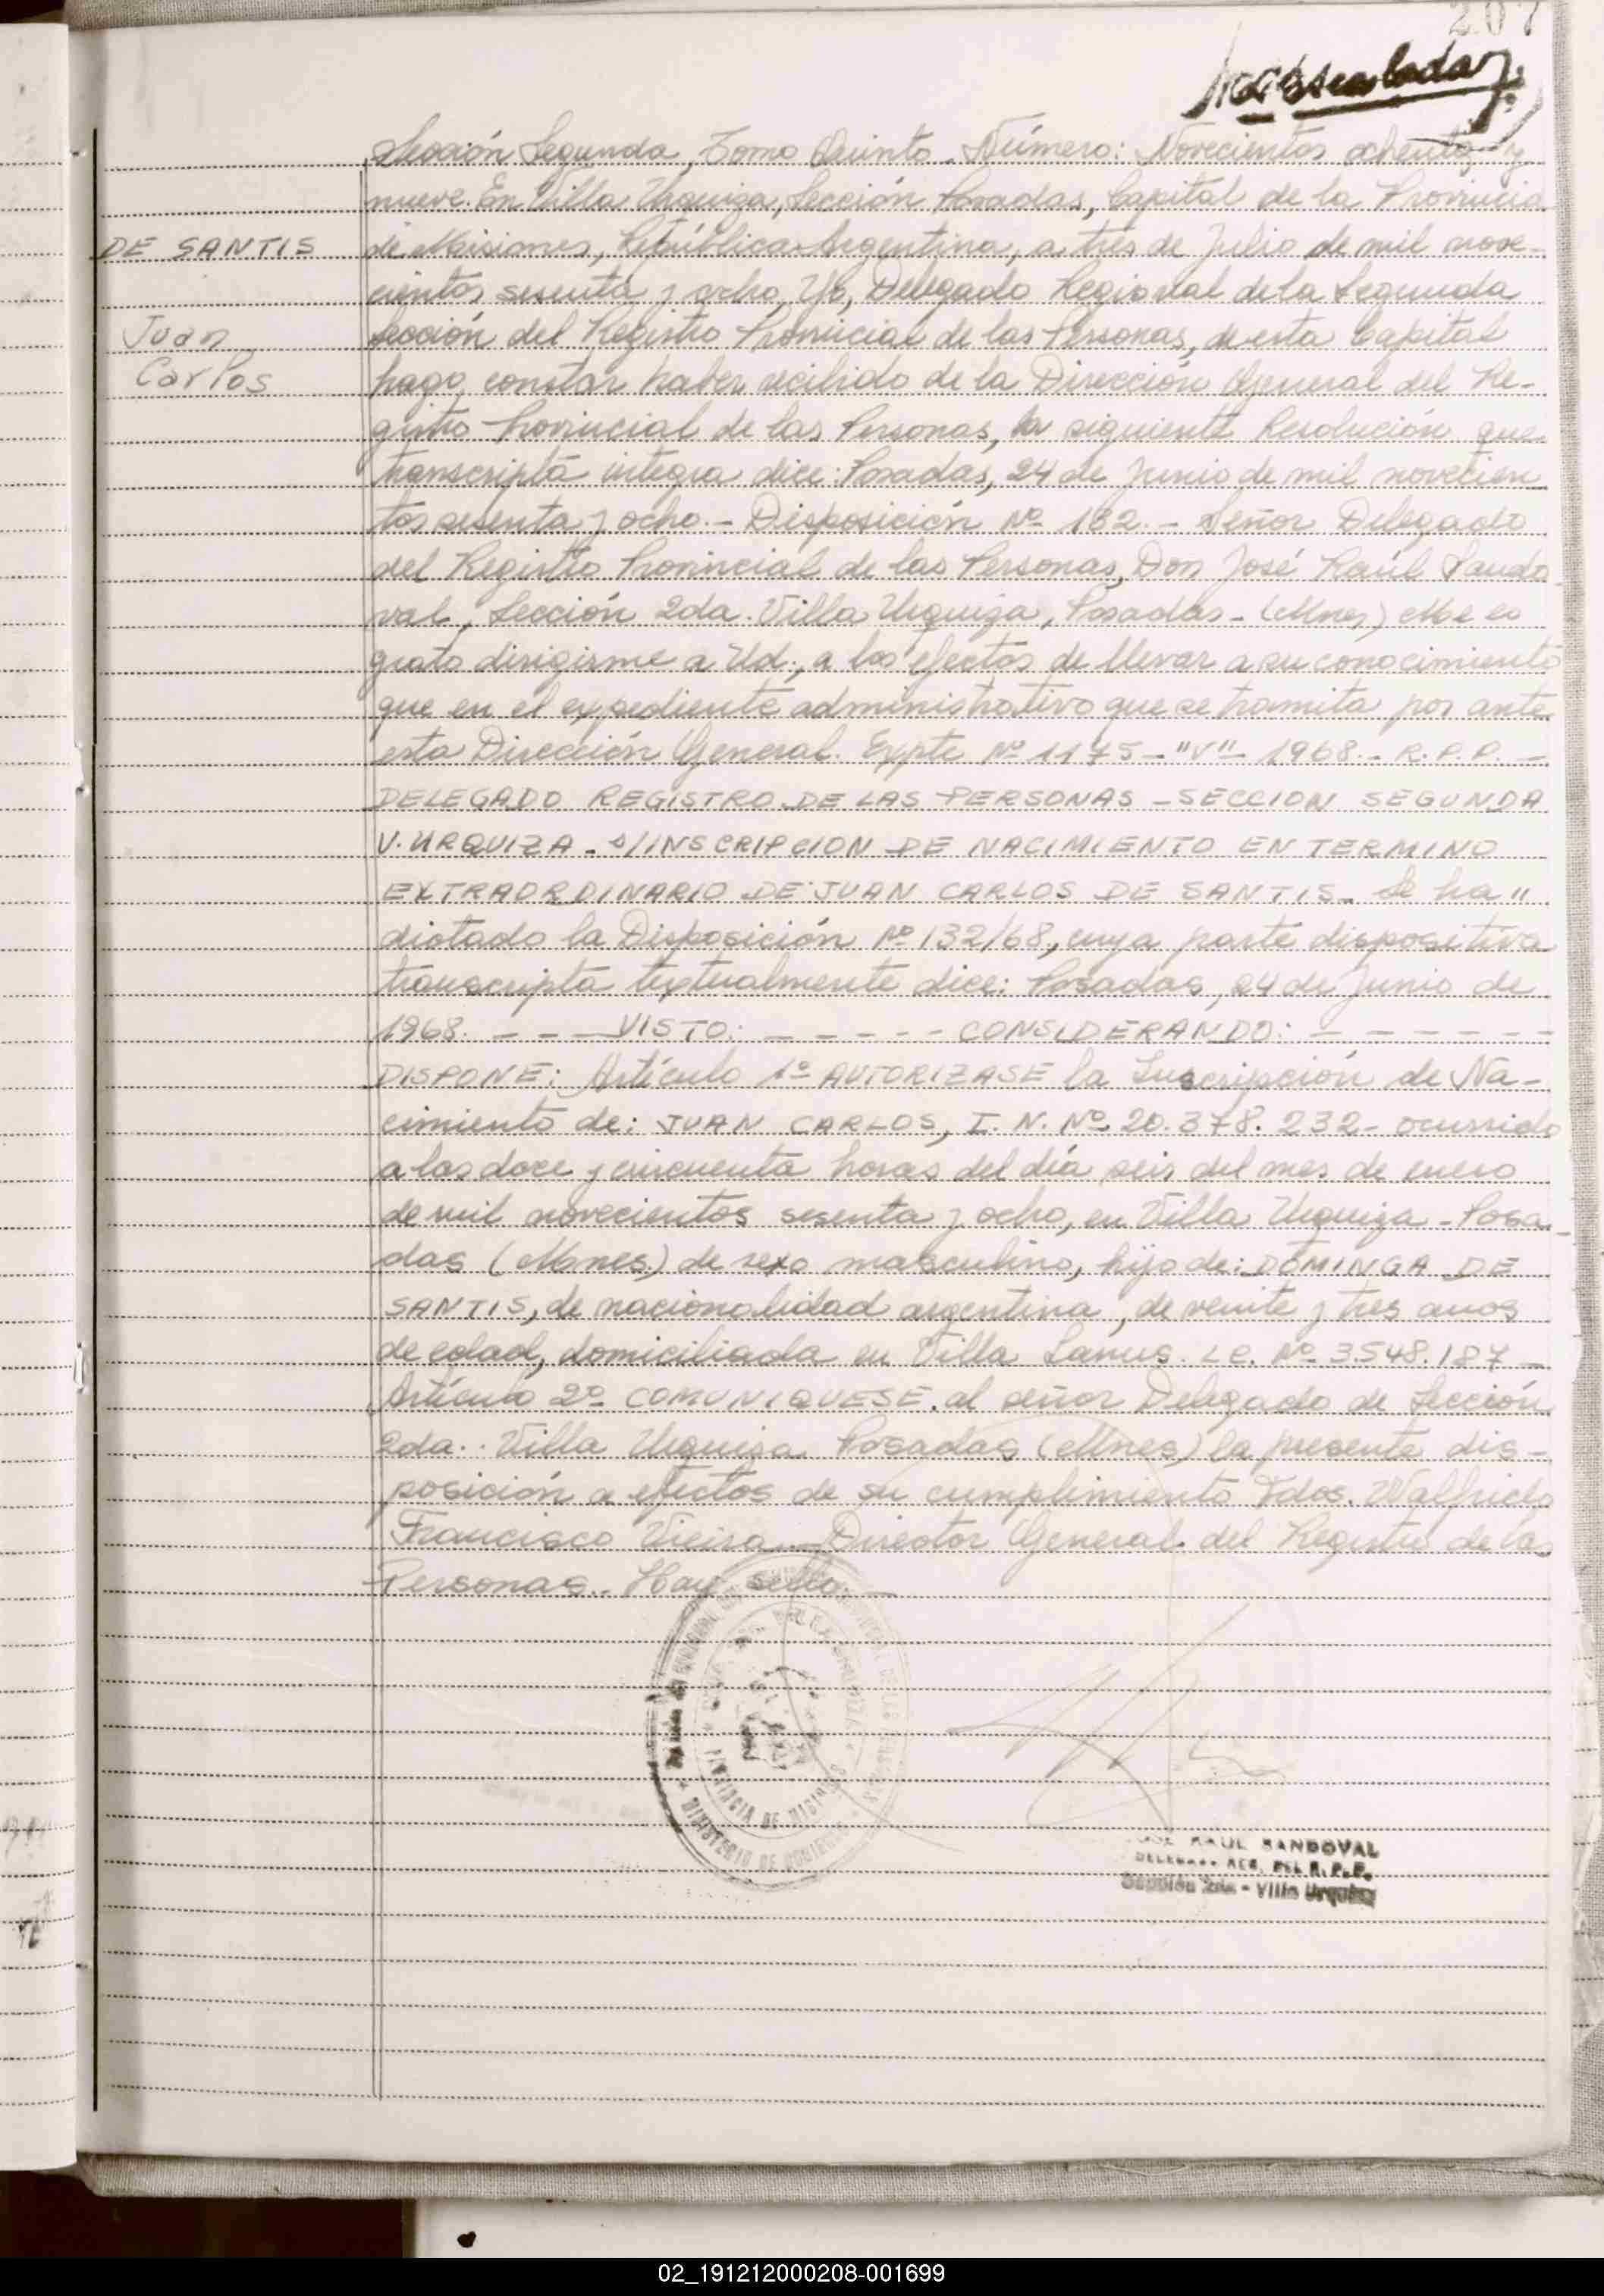 207
Sección Segunda, Tomo Quinto. Número: Novecientos ochenta y
nueve. En Villa Urquiza, Sección Posadas, Capital de la Provincia
DE SANTIS
de Misiones, República Argentina, a tres de Julio de mil nove-
cientos sesenta y ocho, Yo, Delegado Regional de la Segunda
Juan
Sección del Registro Provincial de las Personas, de esta Capital
Carlos
hago constar haber recibido de la Dirección General del Re-
gistro Provincial de las Personas, la siguiente Resolución que
transcripta integra dice: Posadas, 24 de Junio de mil novecien
tos sesenta y ocho.- Disposición Nº 132.- Señor Delegado
del Registro Provincial de las Personas, Don José Raúl Sando-
val, Sección 2da. Villa Urquiza, Posadas - (Mnes) Me es
grato dirigirme a Ud., a los efectos de llevar a su conocimiento
que en el expediente administrativo que se tramita por ante
esta Dirección General. Expte Nº 1175 - "V" - 1968.- R.P.P. -
DELEGADO REGISTRO DE LAS PERSONAS - SECCION SEGUNDA
V. URQUIZA - S/INSCRIPCION DE NACIMIENTO EN TERMINO
EXTRAORDINARIO DE JUAN CARLOS DE SANTIS. Se ha "
dictado la Disposición Nº 132/68, cuya parte dispositiva
transcripta textualmente dice: Posadas, 24 de Junio de
1968. - - - VISTO: - - - - - CONSIDERANDO: - - - - - -
DISPONE: Artículo 1º AUTORIZASE la Inscripción de Na-
cimiento de: JUAN CARLOS, I. N. Nº 20.378.232 - ocurrido
a las doce y cincuenta horas del día seis del mes de enero
de mil novecientos sesenta y ocho, en Villa Urquiza - Posa-
das (Mnes.) de sexo masculino, hijo de: DOMINGA DE
SANTIS, de nacionalidad argentina, de veinte y tres anos
de edad, domiciliada en Villa Lanus. LC. Nº 3.548.187 -
Artículo 2º COMUNIQUESE. al señor Delegado de Sección
2da. Villa Urquiza Posadas (Mnes) la presente dis-
posición a efectos de su cumplimiento Fdos. Walfrido
Francisco Vieira - Director General del Registro de las
Personas. Hay sello. -
PROVINCIA DE MISIONES
MINISTERIO DE GOBIERNO
RAUL SANDOVAL
DELEGADO REG. DEL R.P.P.
Sección 2da - Villa Urquiza
02_191212000208-001699